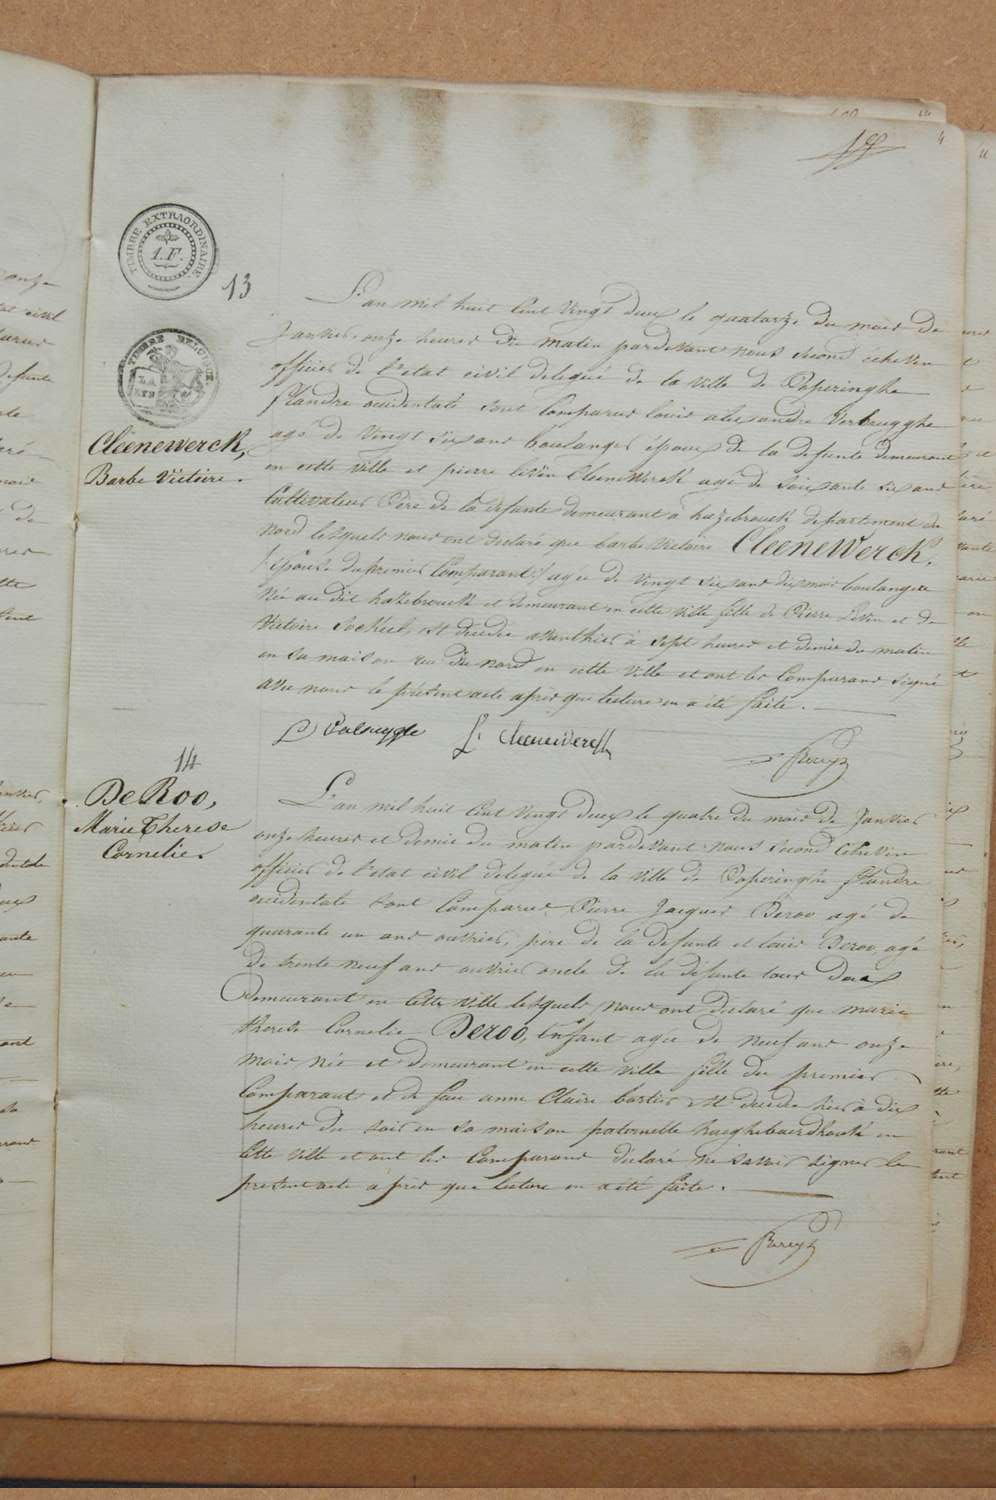 4
TIMBRE EXTRAORDINAIRE
1.F.
TIMBRE BELGIQUE
13
Cleenewerck,
Barbe Victoire.
L'an mil huit cent vingt deux le quatorze du mois de
Janvier onze heures du matin pardevant nous second echevin
officier de l'etat civil delegué de la ville de Poperinghe
flandre occidentale sont comparus louis alexandre Verbrugghe
agé de vingt six ans boulanger époux de la defunte demeurant
en cette ville et pierre levin Cleenewerck agé de soixante six ans
Cultivateur Père de la défunte demeurant à hazebrouck departement du
Nord lesquels nous ont declaré que barbe victoire Cleenewerck,
épouse du premier Comparant agée de vingt six ans dix mois boulangere
née au dit hazebrouck et demeurant en cette ville fille de Pierre Levin et de
Victoire est decedée avanthier à sept heures et demie du matin
en sa maison rue du nord en cette ville et ont les Comparans signé
avec nous le présent acte après que lecture en a été faite.
L. Cleenewerck
14
De Roo,
Marie Therese
Cornelie.
L'an mil huit cent vingt deux le quatre du mois de Janvier
onze heures et demie du matin pardevant nous second echevin
officier de l'etat civil delegué de la ville de Poperinghe flandre
occidentale sont Comparus Pierre Jacques Deroo agé de
quarante un ans ouvrier, père de la defunte et louis Deroo, agé
de trente neuf ans ouvrier oncle de la défunte tous deux
Demeurant en cette ville lesquels nous ont déclaré que marie
therese Cornelie Deroo, Enfant agée de neuf ans onze
mois née et demeurant en cette ville fille du premier
Comparant et de feue anne Claire est decedée hier à dix
heures du soir en sa maison paternelle en
cette ville et ont les Comparans déclaré ne savoir signer le
présent acte après que lecture en a été faite.